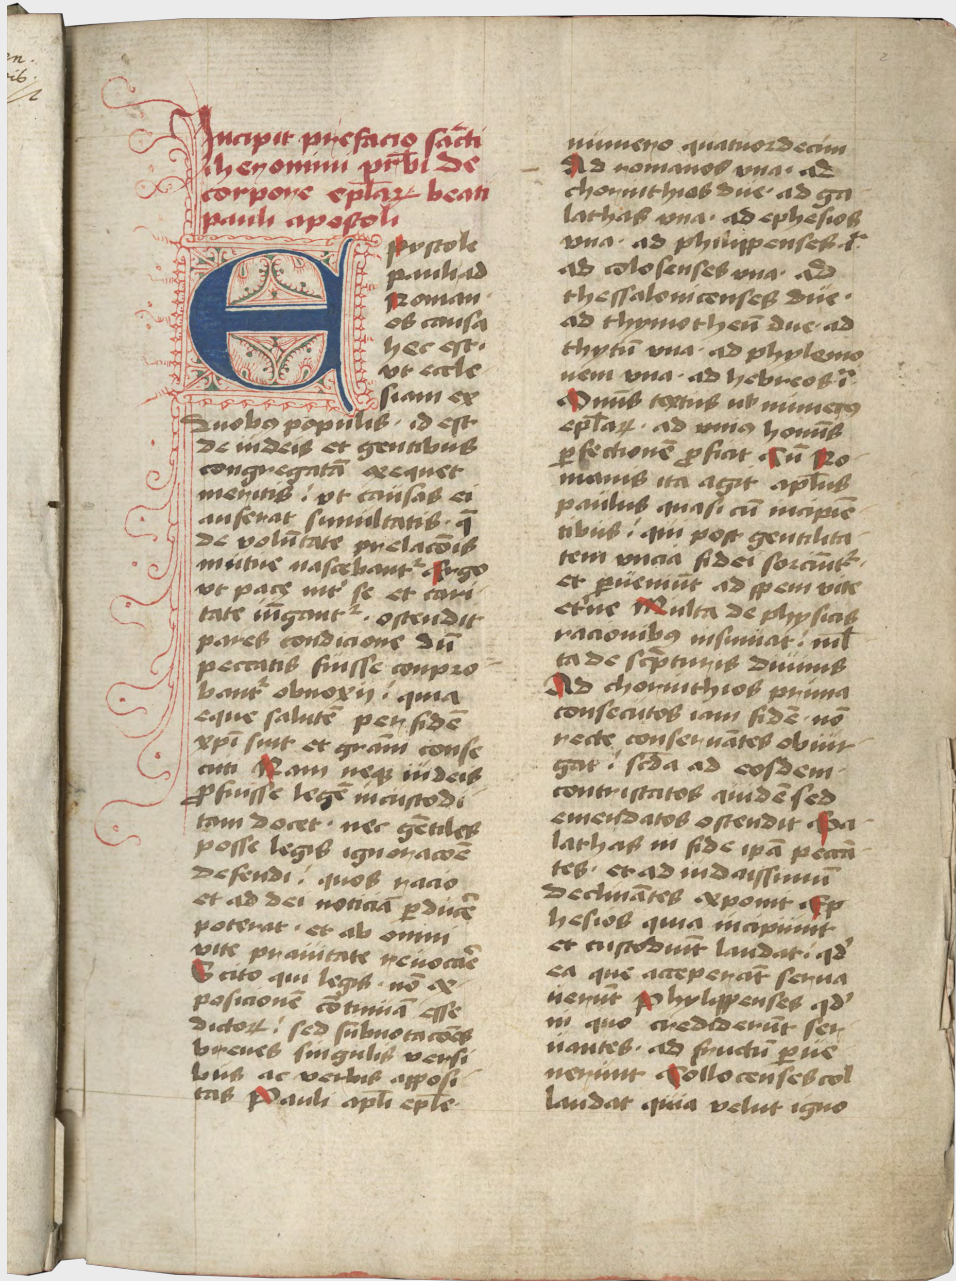 Incipit prefacio sācti
iheronimi prb̄i de
corpore epl̄aꝝ beati
pauli apostoli
Epystole
pauli ad
Roman
os causa
hec est·
vt eccle
siam ex
duobꝰ populis · id est
de iudeis et gentibus
congregatā exequet
meritis : vt causas ei
auferat simultatis · q̄
de volūtate prelacōis
mutue nascebant᷑ Ergo
vt pacē int᷑ se et cari
tate iūgant᷑ · ostendit
pares condicione dū
peccatis fuisse conpro
bant᷑ obnoxii · quia
eque salutē per fidē
xp̄i sint et grām conse
cuti Nam neqꝫ iudeis
ꝓfuisse legē incustodi
tam docet · nec gētiles
posse legis ignoracōē
defendi : quos racio
et ad dei noticiā ꝑducē
poterat · et ab omni
vite prauitate reuocāē
Scito qui legis · nō ex
posicionē cōtinuā esse
dictoꝝ : sed subnotacōēs
breues singulis versi
bus ac verbis apposi
tas Pauli apl̄i epl̄e
numero quatuordecim
Ad romanos vna · ad
chorinthios due · ad ga
lathas vna · ad ephesios
vna · ad philippenses · i᷑
ad colosenses vna · ad
thessalonicenses due ·
ad thymotheū due · ad
thytū vna · ad phylemo
nem vna · ad hebreos · i᷑
Omīs textus ub numerꝰ
epl̄aꝝ · ad vniꝰ homīs
ꝑfectionē ꝓficit Cū Ro
manis ita agit apl̄us
paulus quasi cū incipiē
tibus : qui post gentilita
tem vncia fidei sorciūt᷑ ·
et ꝑueniūt ad spem vite
et͛ne Multa de physicis
racionibꝰ insinuat : ml̄
ta de scp̄turis diuinis
Ad chorinthios prima
consecutos iam fidē · nō
recte conseruātes obiur
gat : scd̄a ad eosdem
contristatos quidē sed
emendatos ostendit Ga
lathas in fide ip̄ā peccā
tes · et ad iudaissimū
declinātes exponit Ep
hesios quia incipiunt
et custodiūt laudat : qd᷑
ea que acceperāt serua
uerūt Phylippenses qd᷑
in quo crediderūt ser
uantes · ad fructū ꝑue
nerunt Collocenses col
laudat quia velut igno